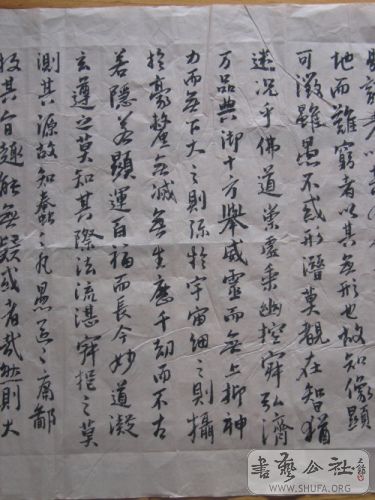 地而難窮者以其無形也故知像顯
可徵雖愚不惑形潛莫覩在智猶
迷況乎佛道崇虛乘幽控寂弘濟
万品典御十方舉威靈而無上抑神
力而無下大之則弥於宇宙細之則攝
於豪釐無滅無生歷千劫而不古
若隱若顯運百福而長今妙道凝
玄遵之莫知其際法流湛寂挹之莫
測其源故知蠢々凡愚區々庸鄙
投其旨趣能無疑或者哉然則大
書藝公社
WWW.SHUFA.ORG